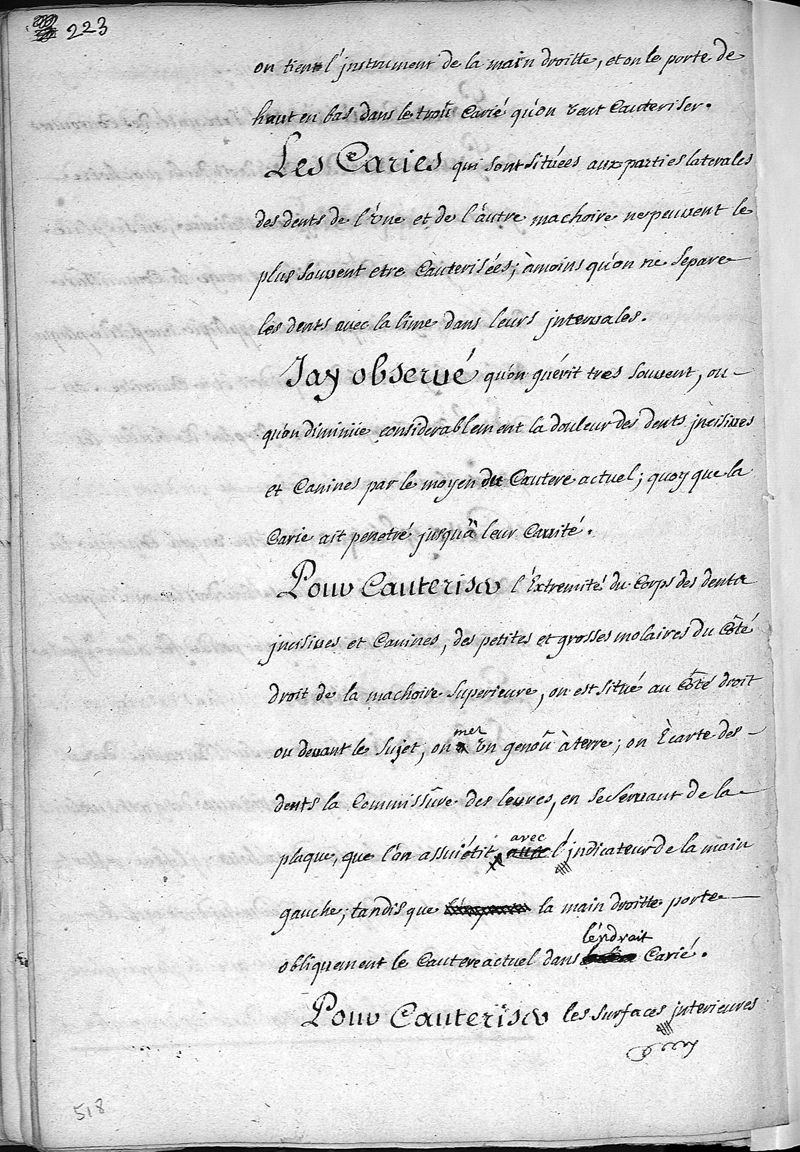 223
on tient l'jnstrument de la main droitte, et on le porte de
haut en bas dans le troû Carié qu'on veut Cauteriser.
Les Caries qui sont situées aux parties laterales
des dents de l'vne et de l'âutre machoire ne peuvent le
plus souvent etre Cauterisées; àmoins qu'on ne separe
les dents avec la lime dans leurs jntervales.
Jay observé qu'on guérit tres souvent, ou
qu'on diminüe considerablement la douleur des dents jncisives
et Canines par le moyen du Cautere actuel; quoy que la
Carie ait penetré jusqu'à leur Cavité.
Pour Cauteriser l'Extremité du Corps des dents
jncisives et Canines, des petites et grosses molaires du Côté
droit de la machoire superieure, on est situé au Côté droit
ou devant le sujet, on met vn genoû à terre; on Ècarte des
dents la Commissûre des levres, en se servant de la
plaque, que l'on assujétit avec l'jndicateur de la main
gauche; tandis que la main droitte porte
obliquement le Cautere actuel dans léndroit Carié.
Pour Cauteriser les surfaces jnterieures
518